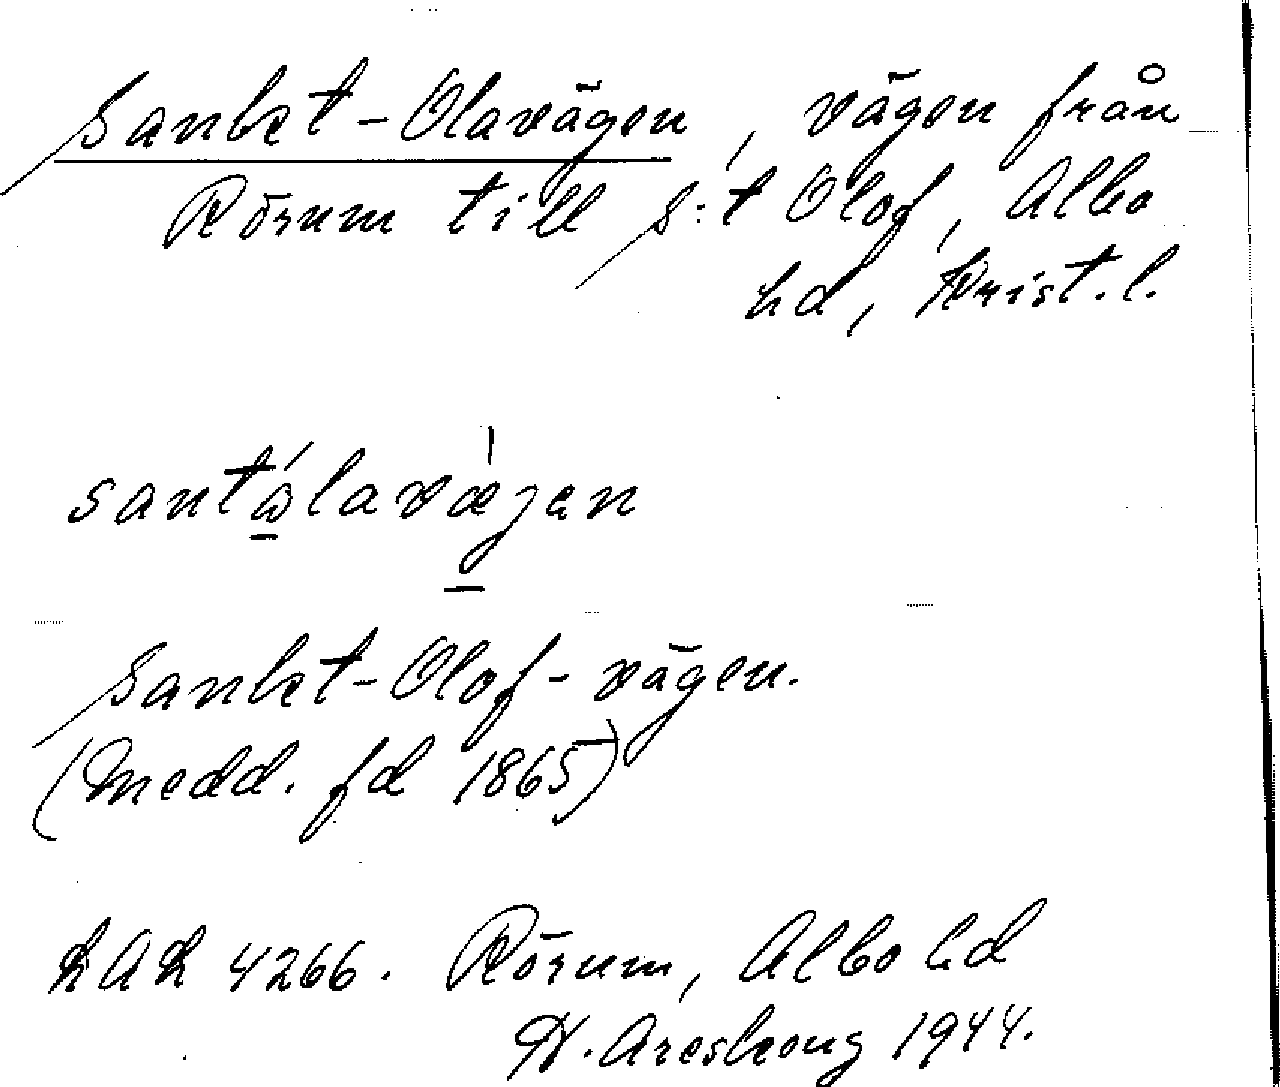 Sankt-Olavägen, vägen från
Rörum till S:t Olof, Albo
hd, Krist.l.
santɷ́lavæ̀jen
Sankt-Olof-vägen.
(Medd. fd 1865)
LAL 4266. Rörum, Albo hd
H. Areskoug 1944.